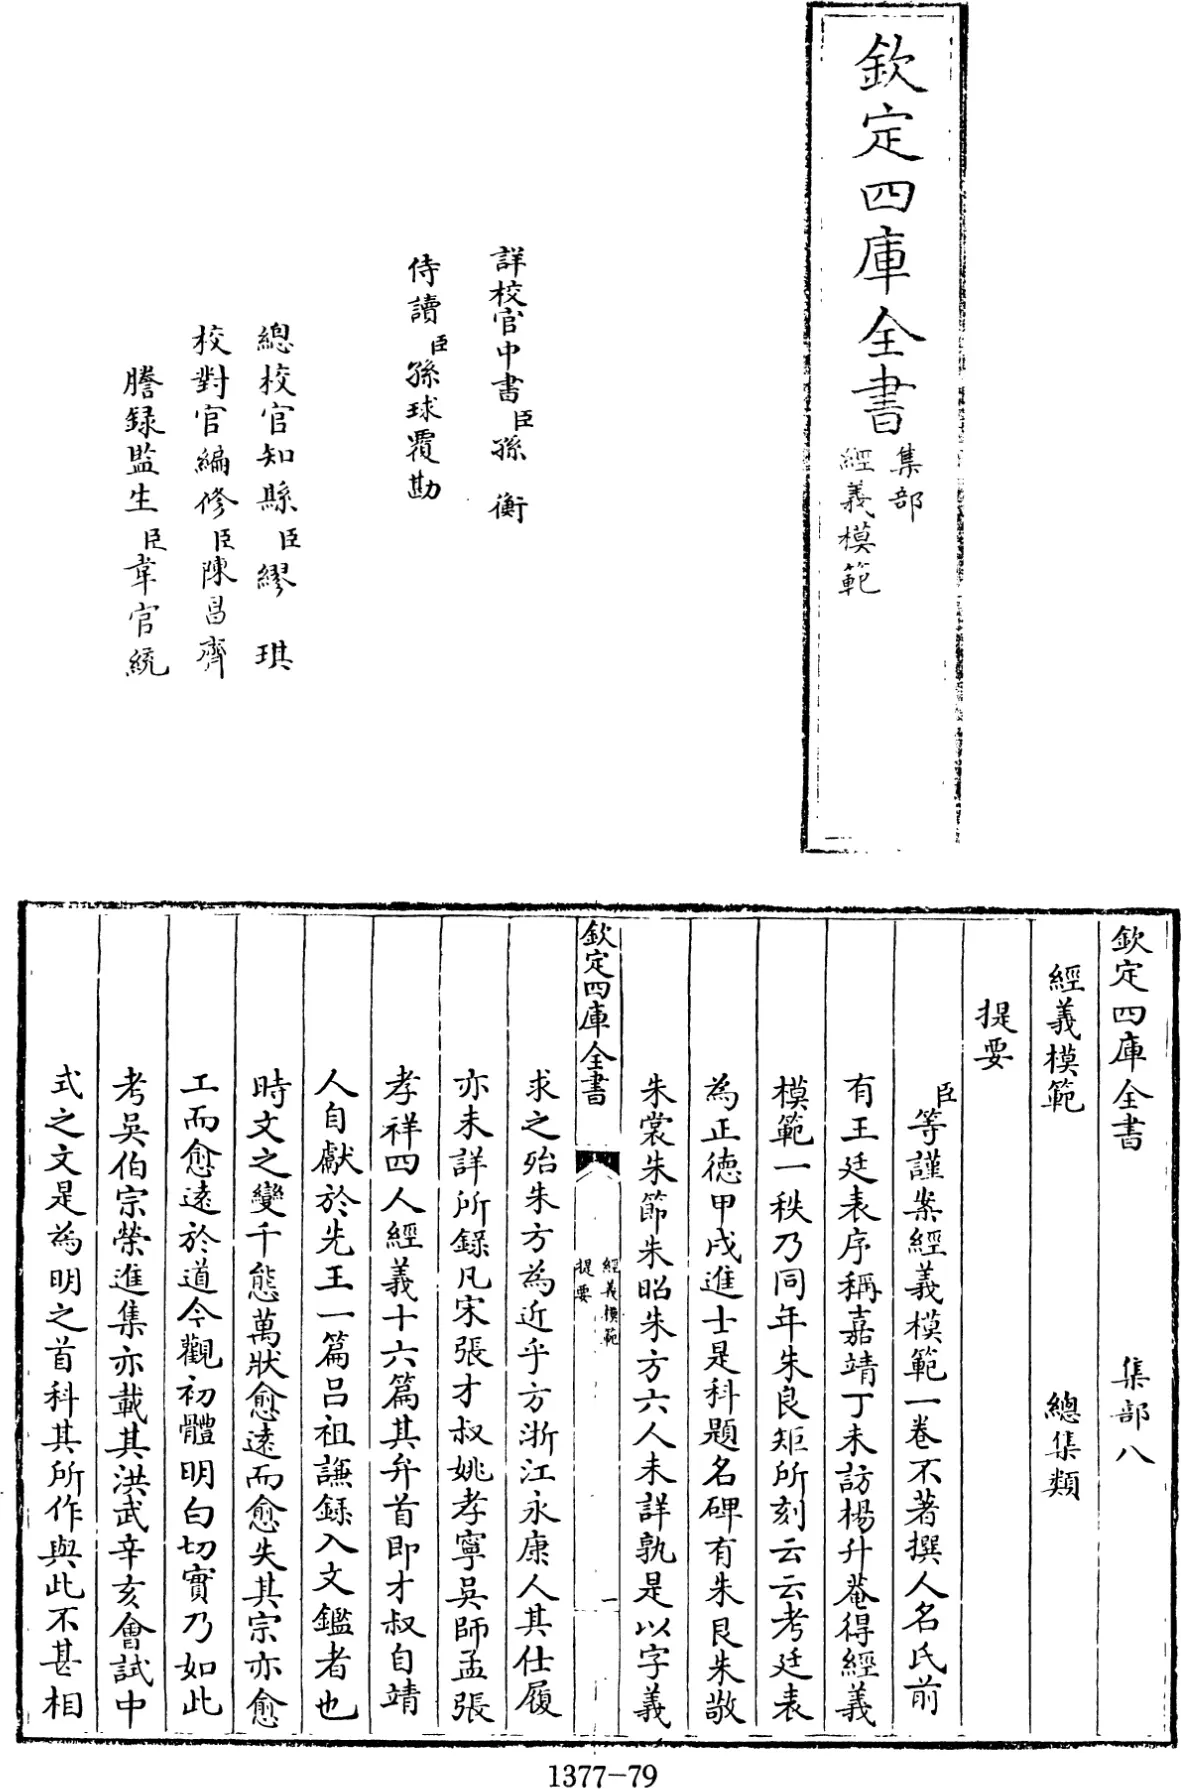 欽定四庫全書
集部
經義模範
詳校官中書臣孫衡
侍讀臣孫球覆勘
總校官知縣臣繆琪
校對官編修臣陳昌齊
謄録監生臣韋官統
欽定四庫全書 集部八
經義模範 總集類
提要
臣等謹案經義模範一卷不著撰人名氏前
有王廷表序稱嘉靖丁未訪楊升菴得經義
模範一秩乃同年朱良矩所刻云云考廷表
為正德甲戌進士是科題名碑有朱良朱敬
朱裳朱節朱昭朱方六人未詳孰是以字義
欽定四庫全書
經義模範
提要
一
求之殆朱方為近乎方浙江永康人其仕履
亦未詳所録凡宋張才叔姚孝寧吳師孟張
孝祥四人經義十六篇其弁首即才叔自靖
人自獻於先王一篇吕祖謙録入文鑑者也
時文之變千態萬狀愈遠而愈失其宗亦愈
工而愈遠於道今觀初體明白切實乃如此
考吳伯宗榮進集亦載其洪武辛亥會試中
式之文是為明之首科其所作與此不甚相
1377-79